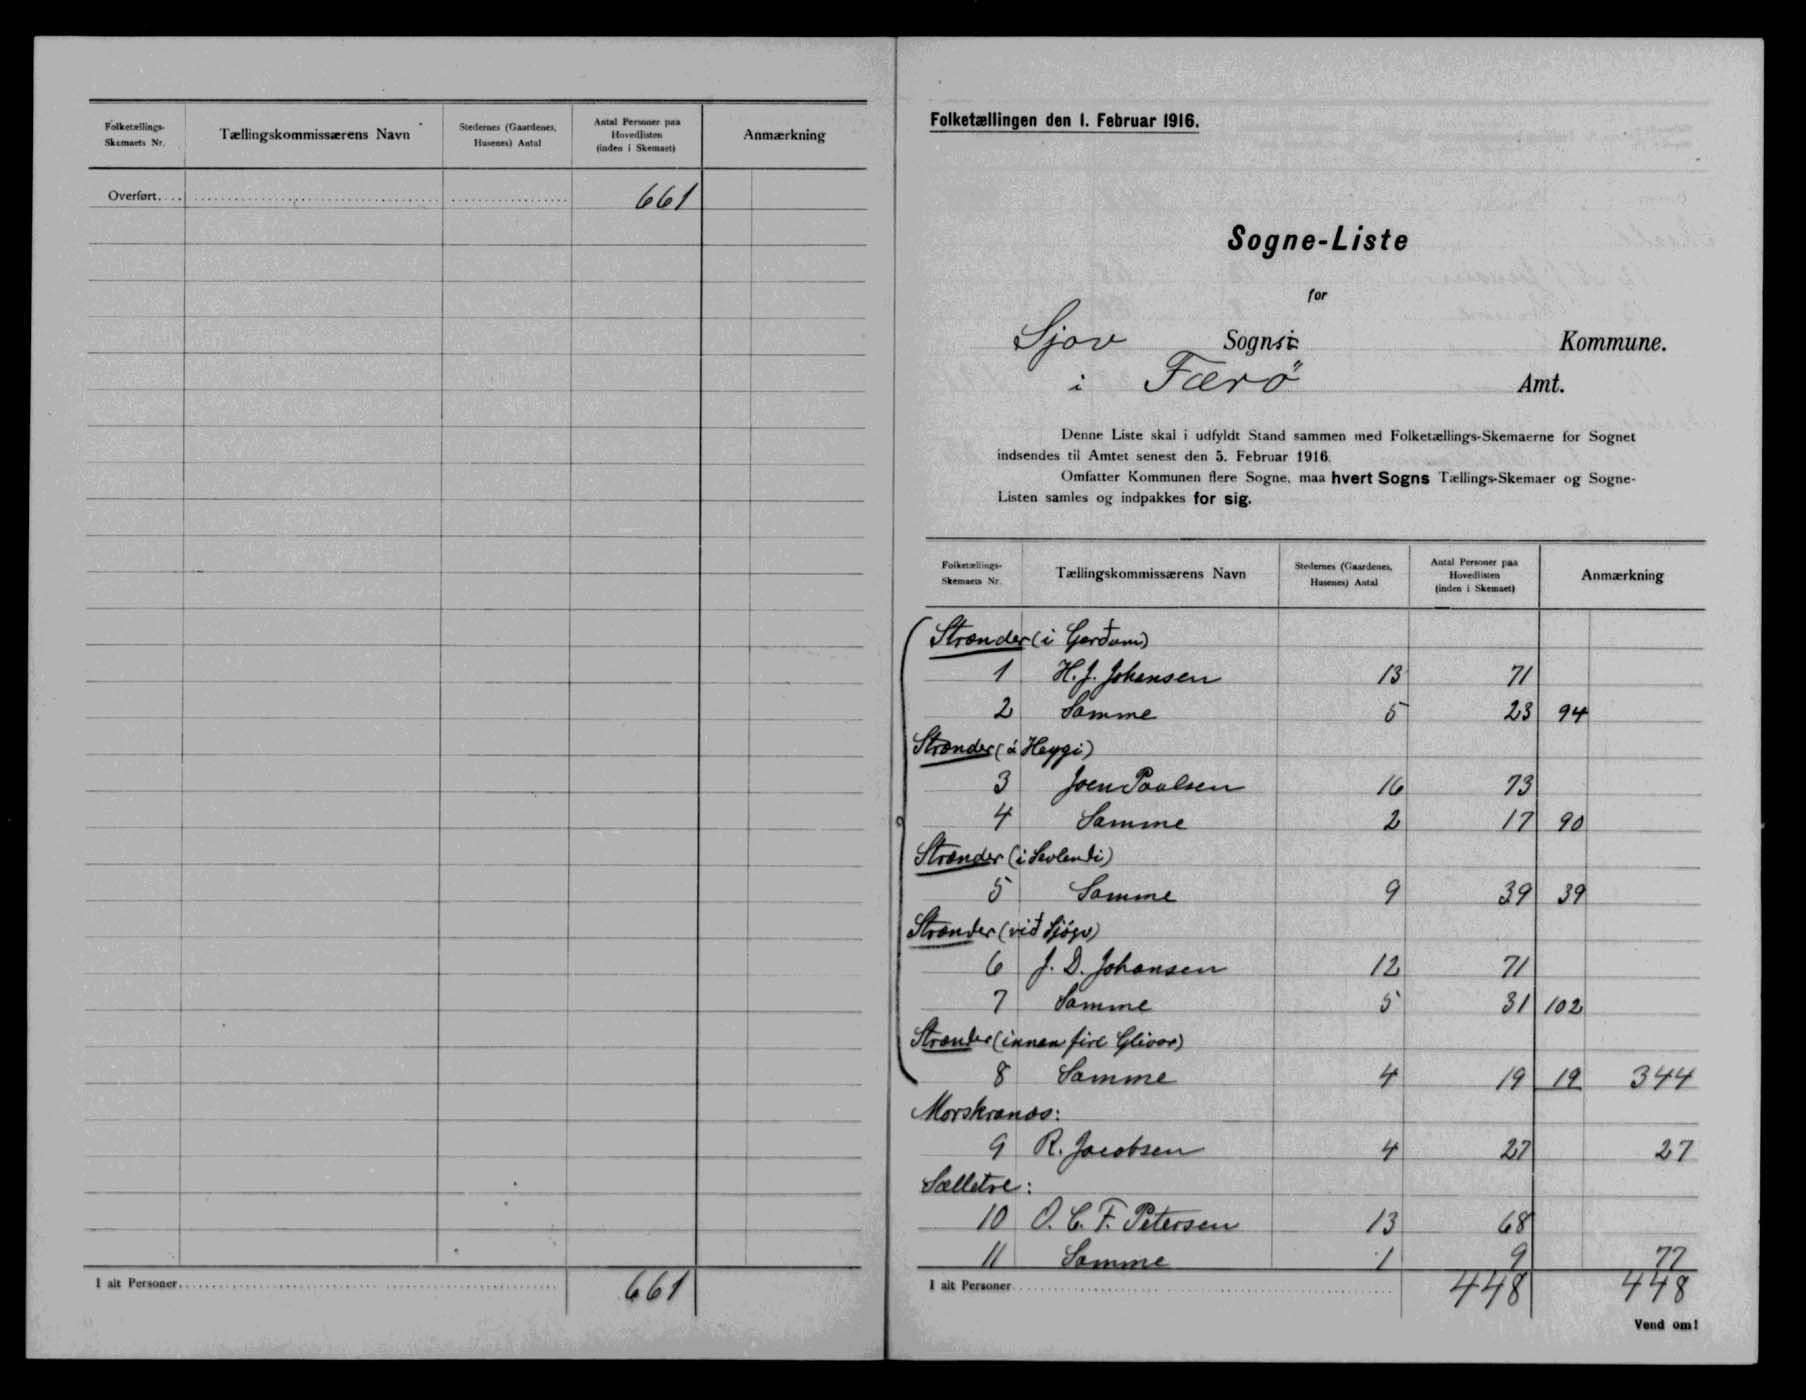 Folketællings-Skemaets Nr. Tællingskommissærens Navn Stedernes (Gaardenes, Husenes) Antal Antal Personer paa Hovedlisten (inden i Skemaet) Anmærkning
Overført 661
I alt Personer 661
Folketællingen den 1. Februar 1916.
Sogne-Liste
for
Sjov Sogn Kommune.
i Færö Amt.
Denne Liste skal i udfyldt Stand sammen med Folketællings-Skemaerne for Sognet
indsendes til Amtet senest den 5. Februar 1916.
Omfatter Kommunen flere Sogne, maa hvert Sogns Tællings-Skemaer og Sogne-
Listen samles og indpakkes for sig.
Folketællings-Skemaets Nr. Tællingskommissærens Navn Stedernes (Gaardenes, Husenes) Antal Antal Personer paa Hovedlisten (inden i Skemaet) Anmærkning
Strænder (i Gerðum)
1 H. J. Johansen 13 71
2 Samme 5 23 94
Strænder (á Heygi)
3 Joen Poulsen 16 73
4 Samme 2 17 90
Strænder (i Sevlendi)
5 Samme 9 39 39
Strænder (við Sjógv)
6 J. D. Johansen 12 71
7 Samme 5 31 102
Strænder (innan fire Glivar)
8 Samme 4 19 19 344
Morskranæs:
9 R. Jacobsen 4 27 27
Sælletræ:
10 O. C. F. Petersen 13 68
11 Samme 1 9 77
I alt Personer 448 448
Vend om!